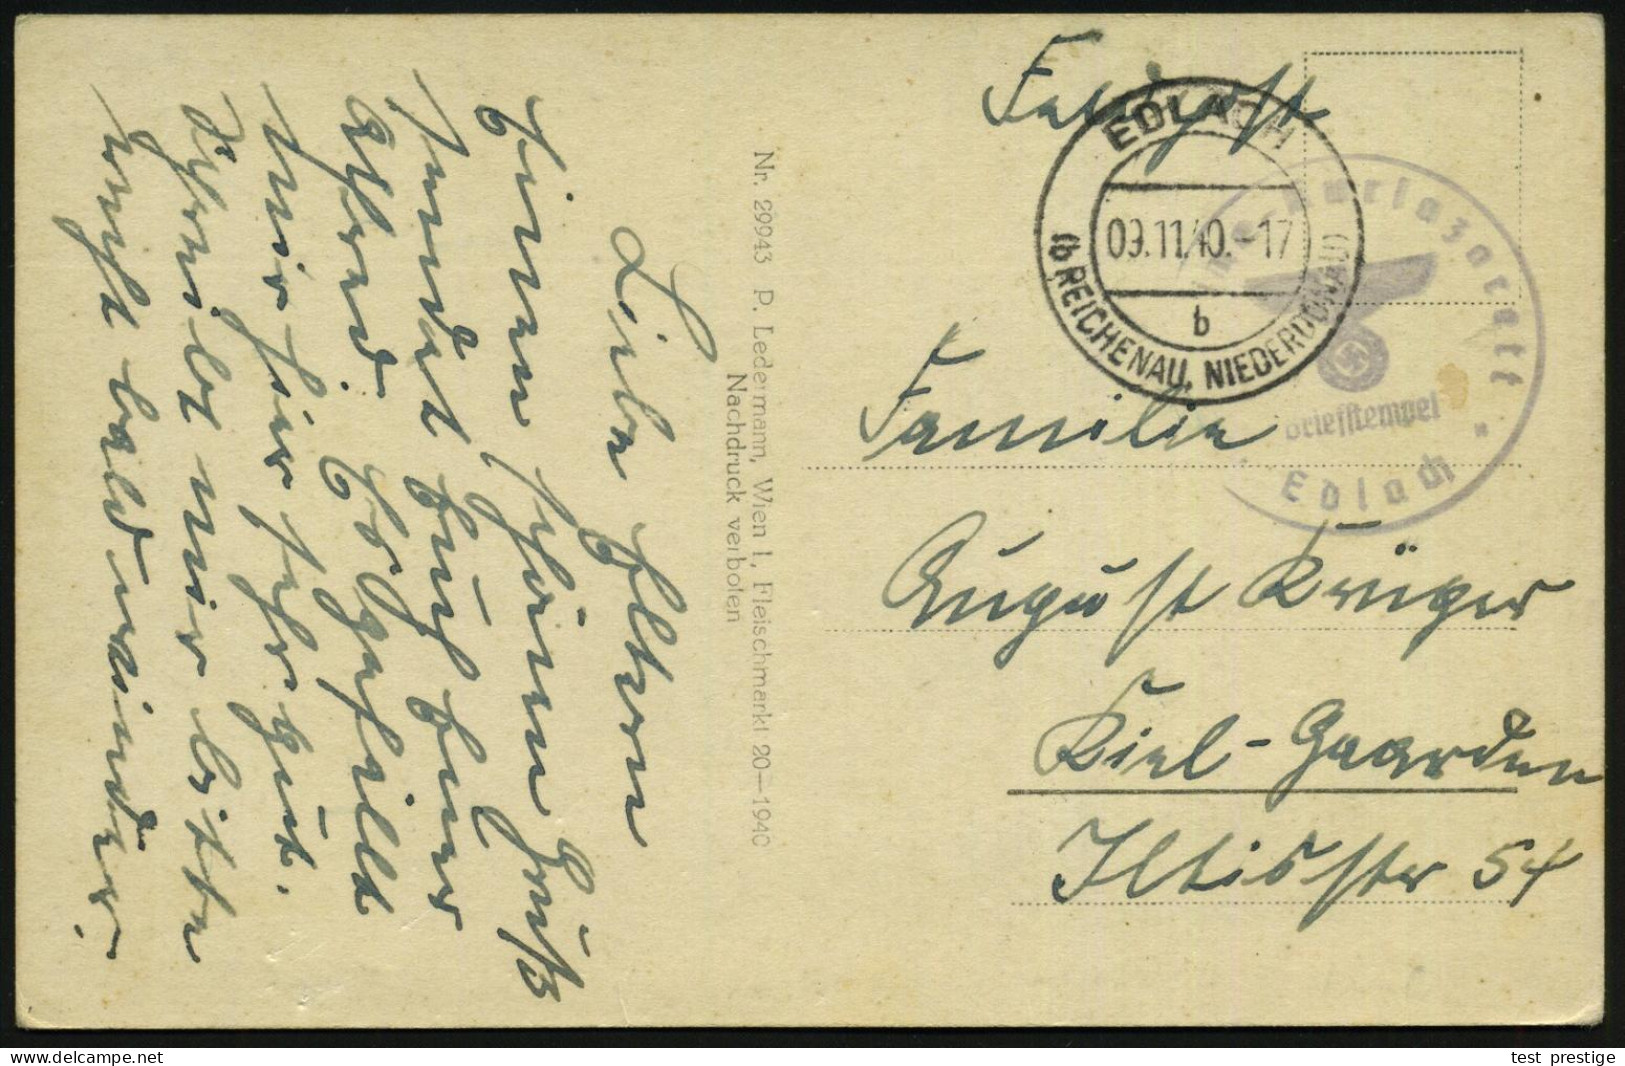 Feldpost
EDLACH
09.11.40.-17
b
(b REICHENAU, NIEDERDONAU)
Kurlazarett
Briefstempel
Edlach
Familie
August Krüger
Kiel-Gaarden
Iltisstr 54
Nr. 29943 P. Ledermann, Wien I., Fleischmarkt 20—1940
Nachdruck verboten
Liebe Eltern
Einen schönen Gruß
sendet Euch Euer
Alfred. Es gefällt
mir hier sehr gut.
Schreibt mir bitte
recht bald wieder.
test_prestige
www.delcampe.net